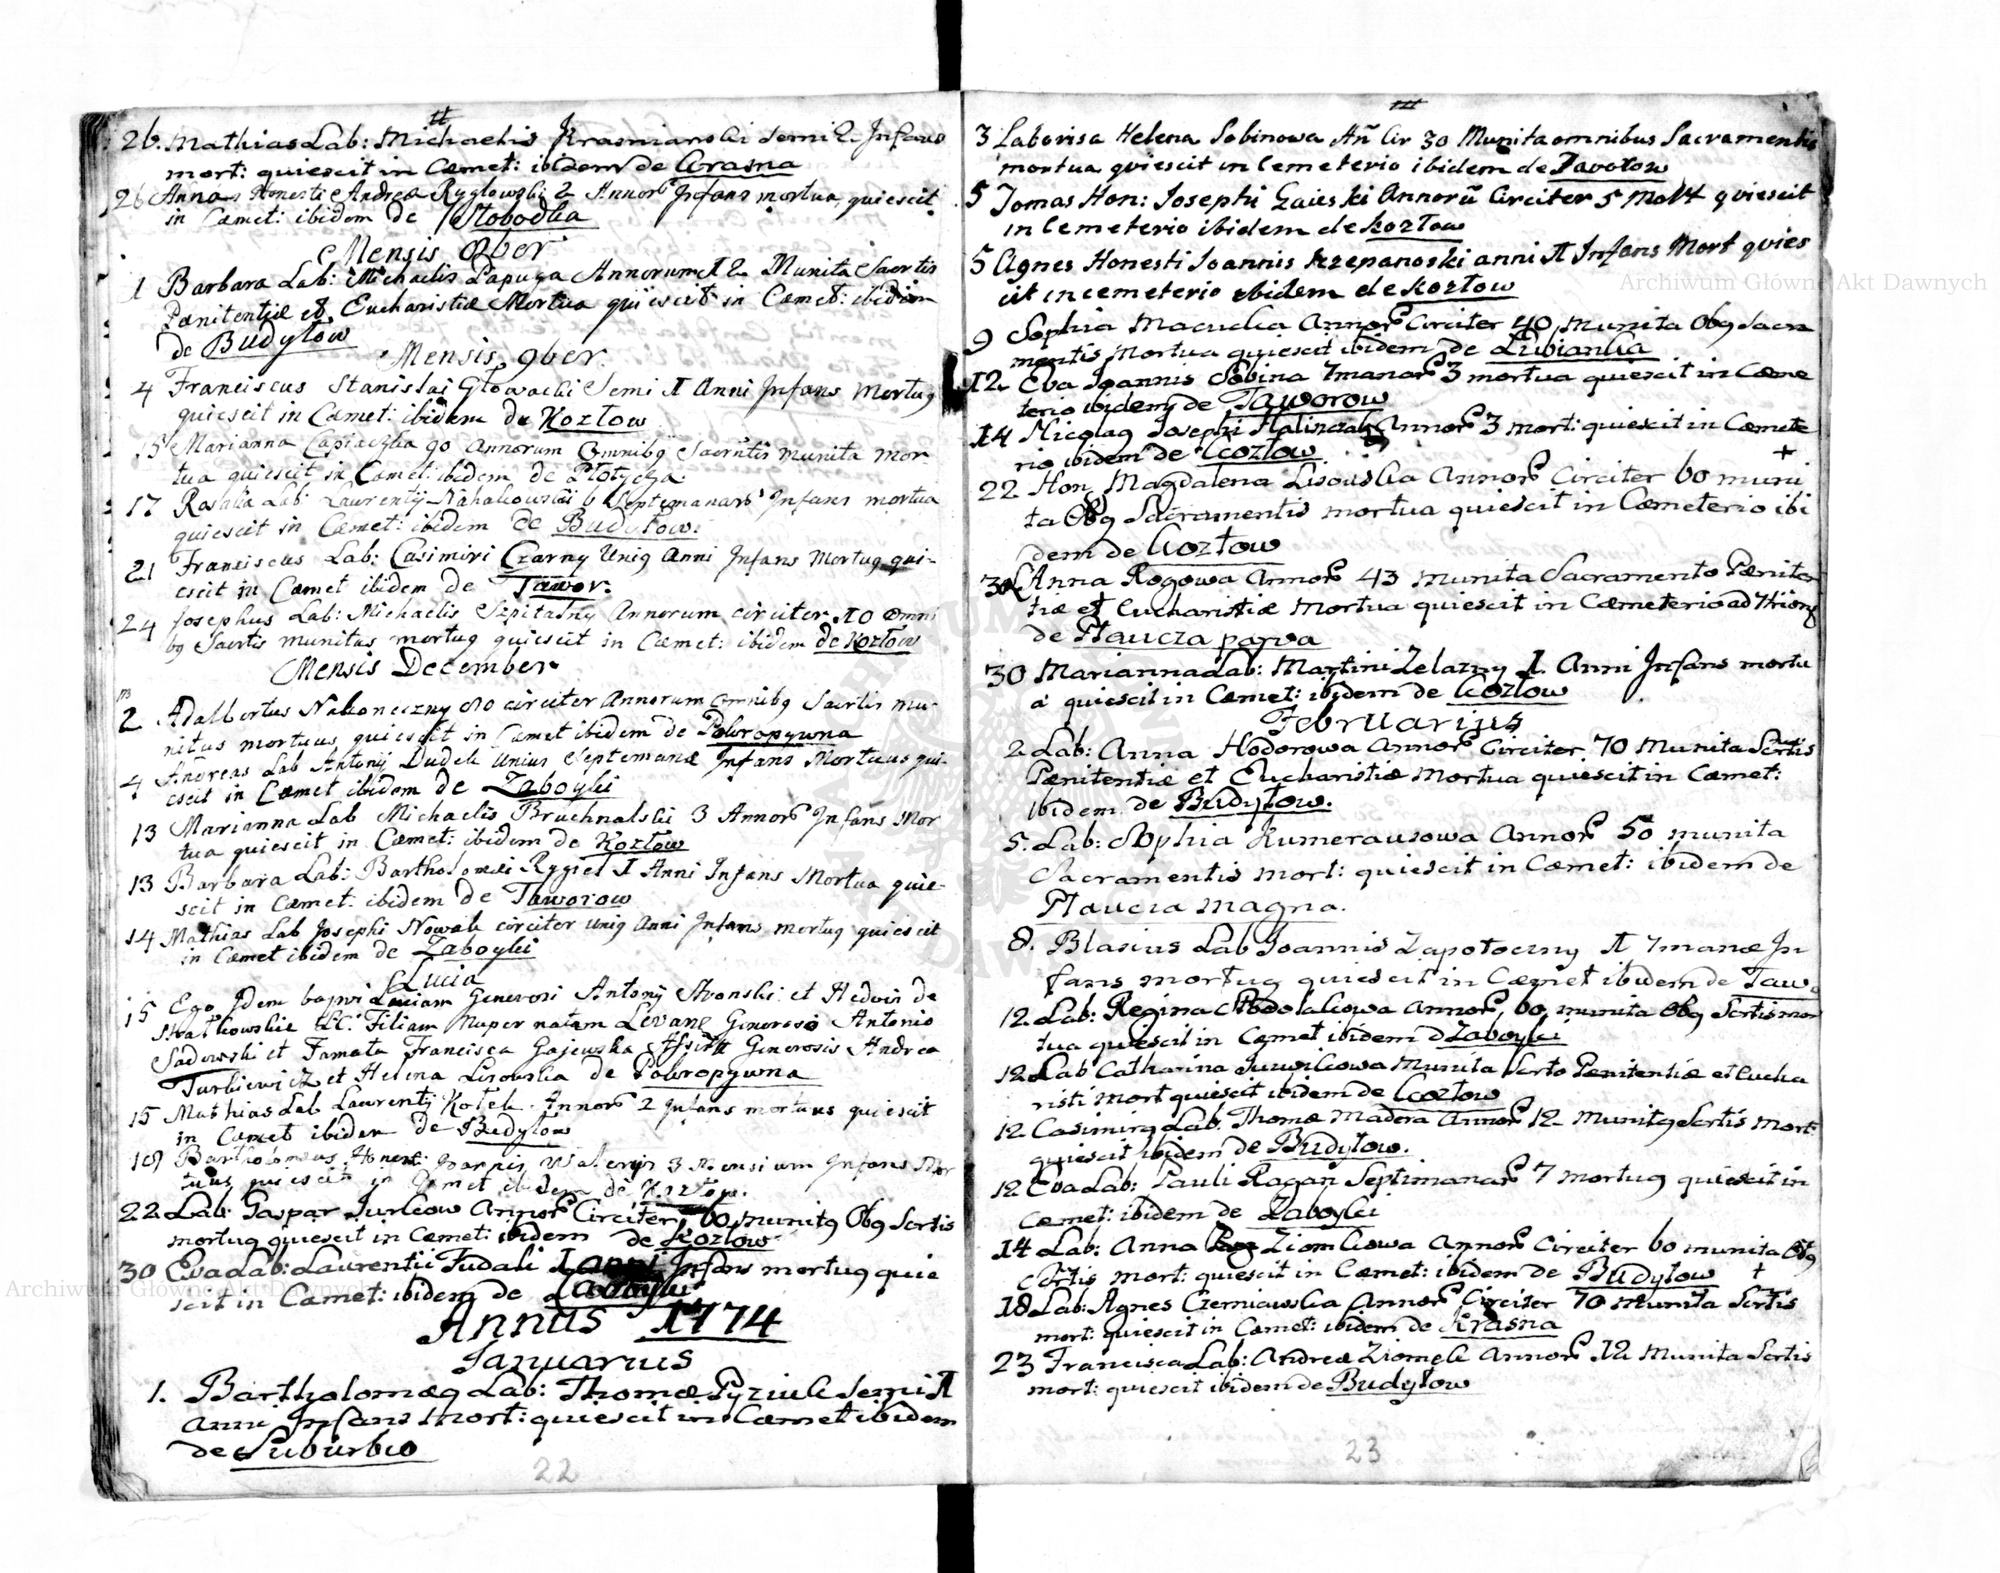 26. Mathias Lab: Michaelis Krasnianski semi 2. Infans
mort: quiescit in Cœmet: ibidem de Krasna
26 Anna Honesti Andreæ Ryglowski 2 Annorũ Infans mortua, quiescit
in Cœmet: ibidem de Słobodka
Mensis 8ber
1 Barbara Lab: Michaelis Papuga Annorum 12 Munita Sacrtis
Pœnitentiæ et Eucharistiæ Mortua quiescit in Cœmet: ibidem
de Budyłow
Mensis 9ber.
4 Franciscus Stanislai Głowacki Semi 1 Anni Infans Mortuq
quiescit in Cœmet: ibidem de Kozłow
15 Marianna 90 Annorum Omnibq Sacrmtis munita mor
tua quiescit in Cœmet: ibidem de Płotycza
17 Rosalia Lab: Laurentij 6 Septymanarũ Infans mortua
quiescit in Cœmet: ibidem de Budyłow.
21 Franciscus Lab: Casimiri Czarny Uniq Anni Infans Mortuq qui-
escit in Cœmet ibidem de Tawor.
24 Josephus Lab: Michaelis Szpitalny Annorum circiter 10 Omni
bq Sacrtis munitus mortuq quiescit in Cœmet: ibidem de Kozłow
Mensis December
2 Adalbertus Nakoneczny 80 circiter Annorum Omnibq Sacrtis mu-
nitus mortuus quiescit in Cœmet ibidem de Pokropywna
4 Andreas Lab Antonij Dudek Unius Septemanæ Infans Mortuus qui-
escit in Cœmet ibidem de Zaboyki
13 Marianna Lab Michaelis Bruchnalski 3 Annorũ Infans Mor
tua quiescit in Cœmet: ibidem de Kozłow
13 Barbara Lab: Bartholomæi Rygiel 1 Anni Infans Mortua quie-
scit in Cœmet: ibidem de Taworow
14 Mathias Lab Josephi Nowak circiter Uniq Anni Infans mortuq quiescit
in Cœmet ibidem de Zaboyki
Lucia
15 Ego Idem bapvi Luciam Generosi Antonij et Hedvis de
LC: Filiam Nuper natam Levane Generoso Antonio
Sadowski et Famata Francisca Gajewska Generosis Andrea
Turkiewicz et Helena Lisowska de Pokropywna
15 Mathias Lab Laurentij Kotek Annorũ 2 Infans mortuus quiescit
in Cœmet ibidem de Budyłow
19 Bartholomeus Honest: Joannis 3 Mensium Infans Mor
tuus quiescit in Cœmet ibidem de Kozłow.
22. Lab: Gaspar Jurkow Annorũ Circiter, 60, munitq Obq Scrtis
mortuq quiescit in Cœmet: ibidem de Kozłow
30 Eva Lab: Laurentii Fudali 1 anni Infans mortuq quie
scit in Cœmet: ibidem de Zaboyki
Annus 1774
Januarius
1. Bartholomæq Lab: Thomæ Pyziuk Semi 1
anni Infans Mort: quiescit in Cœmet ibidem
de Suburbio
22
3 Laborisa Helena Sobinowa Añ Cir 30 Munita omnibus Sacramentis
mortua quiescit in Cemeterio ibidem de Tavołow
5 Tomas Hon: Josephi Gaieski Annorũ Circiter 5 Mort quiescit
in Cemeterio ibidem de Kozłow
5 Agnes Honesti Joannis Szczepanoski anni 1 Infans Mort quies
cit in cemeterio ibidem de Kozłow
9 Sophia Macucka Annorũ Circiter 40, munita Obq Sacra
mentis Mortua quiescit ibidem de Lubianka
12. Eva Joannis Sobina 7manarũ 3 mortua quiescit in Cœme
terio ibidem de Taworow
14 Nicolaq Josephi Malinczak Annorũ 3 mort: quiescit in Cœmete
rio ibidem de Kozłow
22 Hon Magdalena Lisouska Annorũ Circiter 60 muni
ta Obq Sacramentis mortua quiescit in Cœmeterio ibi
dem de Kozłow
30 Anna Rogowa Annorũ 43 munita Sacramento Pœniten
tiæ et Eucharistiæ Mortua quiescit in Cœmeterio ad
de Płaucza parva
30 Marianna Lab: Martini Zelazny 1 Anni Infans mortu
a quiescit in Cœmet: ibidem de Kozłow
Februarijus
2 Lab: Anna Hodorowa Annorũ Circiter 70 Munita Scrtis
Pœnitentiæ et Eucharistiæ Mortua quiescit in Cœmet:
ibidem de Budyłow.
5. Lab: Sophia Kumerausowa Annorũ 50 munita
Sacramentis mort: quiescit in Cœmet: ibidem de
Płaucza magna.
8. Blasius Lab Joannis Zapotoczny 1 7manæ In
fans mortuq quiescit in Cœmet ibidem de Taw
12. Lab: Regina Podolakowa annorũ, 60, munita Obq Scrtis mor
tua quiescit in Cœmet ibidem d Zaboyki
12 Lab Catharina Jurukowa Munita Scrto Pœnitentiæ et Eucha
risti mort quiescit ibidem de Kozłow
12 Casimirq Lab: Thomæ Madera Annorũ 12 Munitq Scrtis mort:
quiescit ibidem de Budyłow.
12 Eva Lab: Pauli Ragan Septimanarũ 7 mortuq quiescit in
Cœmet: ibidem de Zaboyki
14 Lab: Anna Ziomkowa Annorũ Circiter 60 munita Obq
Scrtis mort: quiescit in Cœmet: ibidem de Budyłow
18 Lab: Agnes Czerniawska Annorũ Circiter 70 munita Scrtis
mort: quiescit in Cœmet: ibidem de Krasna
23 Francisca Lab: Andreæ Ziomek Annorũ 12 Munita Scrtis
mort: quiescit ibidem de Budyłow
23
Archiwum Główne Akt Dawnych
Archiwum Główne Akt Dawnych